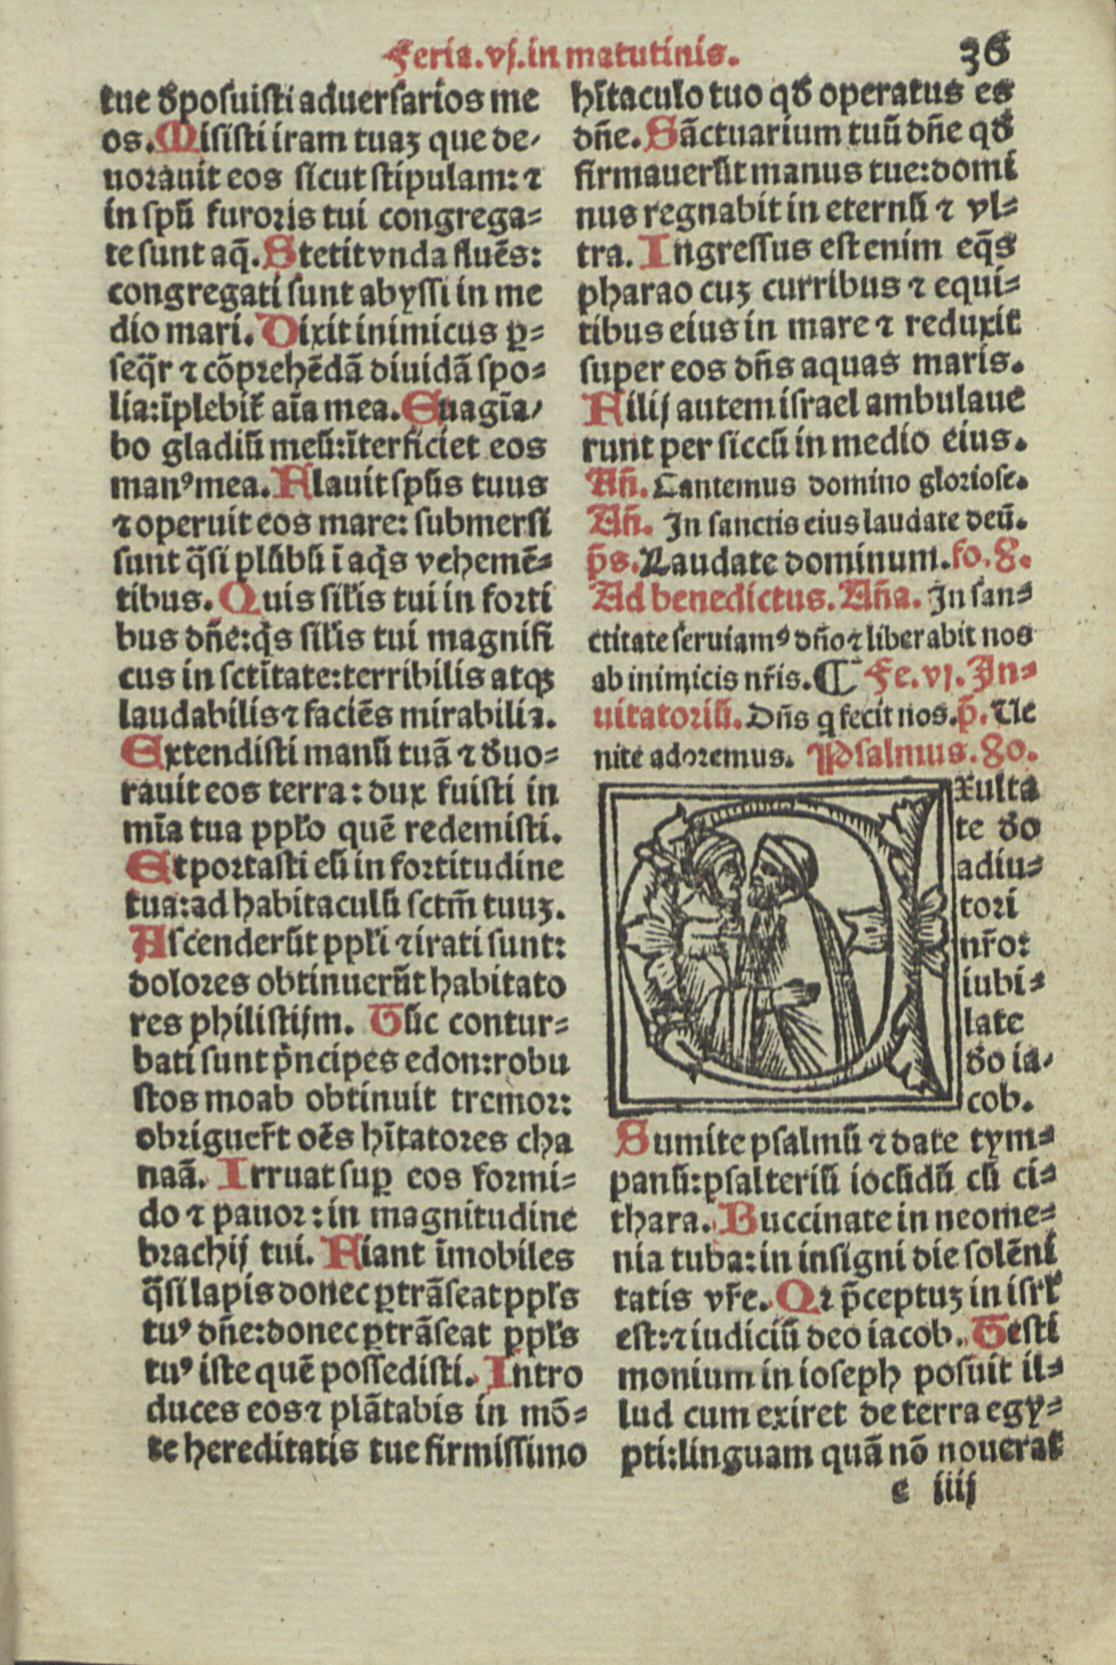 Feria. vj. in matutinis. 36
tue dͤposuisti aduersarios me
os. Misisti iram tuaꝫ que de-
uorauit eos sicut stipulam: ⁊
in spũ furoris tui congrega-
te sunt aq̃. Stetit vnda fluẽs:
congregati sunt abyssi in me
dio mari. Dixit inimicus ꝑ-
seq̃r ⁊ cõprehẽdã diuidã spo-
lia: ĩplebit̃ aĩa mea. Euagĩa-
bo gladiũ meũ: ĩterficiet eos
manꝰ mea. Flauit spũs tuus
⁊ operuit eos mare: submersi
sunt q̃si plũbũ ĩ aq̃s vehemẽ-
tibus. Quis sil̃is tui in forti
bus dñe: q̃s sil̃is tui magnifi
cus in sctĩtate: terribilis atqꝫ
laudabilis ⁊ faciẽs mirabilia.
Extendisti manũ tuã ⁊ dͤuo-
rauit eos terra: dux fuisti in
mĩa tua ppl̃o quẽ redemisti.
Et portasti eũ in fortitudine
tua: ad habitaculũ sctm̃ tuuꝫ.
Ascenderũt ppl̃i ⁊ irati sunt:
dolores obtinuerũt habitato
res philistijm. Tũc contur-
bati sunt p̃ncipes edon: robu
stos moab obtinuit tremor:
obriguer̃t oẽs hĩtatores cha
naã. Irruat suꝑ eos formi-
do ⁊ pauor: in magnitudine
brachij tui. Fiant ĩmobiles
q̃si lapis donec ꝑtrãseat ppl̃s
tuꝰ dñe: donec ꝑtrãseat ppl̃s
tuꝰ iste quẽ possedisti. Intro
duces eos ⁊ plãtabis in mõ-
te hereditatis tue firmissimo
hĩtaculo tuo qd̃ operatus es
dñe. Sãctuarium tuũ dñe qd̃
firmauerũt manus tue: domi
nus regnabit in eternũ ⁊ vl-
tra. Ingressus est enim eq̃s
pharao cuꝫ curribus ⁊ equi-
tibus eius in mare ⁊ reduxit
super eos dñs aquas maris.
Filij autem israel ambulaue
runt per siccũ in medio eius.
Añ. Cantemus domino gloriose.
Añ. In sanctis eius laudate deũ.
p̃s. Laudate dominum. fo. 8.
Ad benedictus. Aña. In san-
ctitate seruiamꝰ dño ⁊ liberabit nos
ab inimicis nr̃is. ¶ Fe. vj. In-
uitatoriũ. Dñs q̃ fecit nos. p̃. Ue
nite adoremus. Psalmus. 80.
Exulta
te dͤo
adiu-
tori
nr̃o:
iubi-
late
dͤo ia-
cob.
Sumite psalmũ ⁊ date tym-
panũ: psalteriũ iocũdũ cũ ci-
thara. Buccinate in neome-
nia tuba: in insigni die solẽni
tatis vr̃e. Qꝛ p̃ceptuꝫ in isrl̃
est: ⁊ iudiciũ deo iacob. Testi
monium in ioseph posuit il-
lud cum exiret de terra egy-
pti: linguam quã nõ nouerat
e iiij